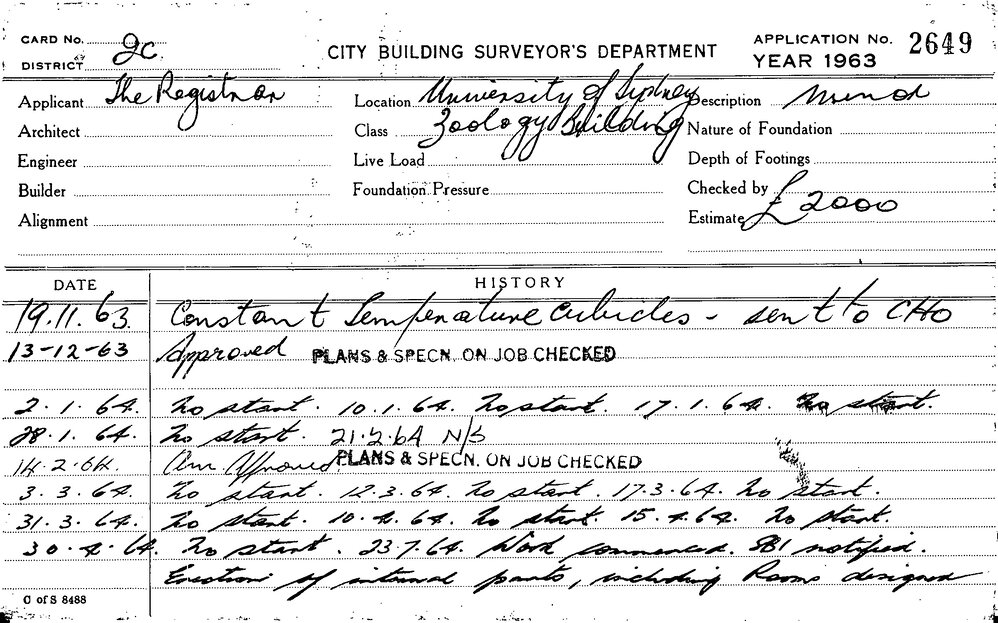 CARD No. 2c
DISTRICT
CITY BUILDING SURVEYOR'S DEPARTMENT
APPLICATION No. 2649
YEAR 1963
Applicant The Registrar
Location University of Sydney
Description Minor
Architect
Class Zoology Building
Nature of Foundation
Engineer
Live Load
Depth of Footings
Builder
Foundation Pressure
Checked by
Alignment
Estimate £2000
DATE HISTORY
19.11.63. Constant Temperature Cubicles - sent to CHO
13-12-63 Approved PLANS & SPECN. ON JOB CHECKED
2.1.64. No start. 10.1.64. No start. 17.1.64. No start.
28.1.64. No start. 21.2.64 N/S
14.2.64. Am Approved PLANS & SPECN. ON JOB CHECKED
3.3.64. No start. 12.3.64. No start. 17.3.64. No start.
31.3.64. No start. 10.4.64. No start. 15.4.64. No start.
30.4.64. No start. 23.7.64. Work commenced. SBI notified.
Erection of internal parts, including Rooms designed
C of S 8488